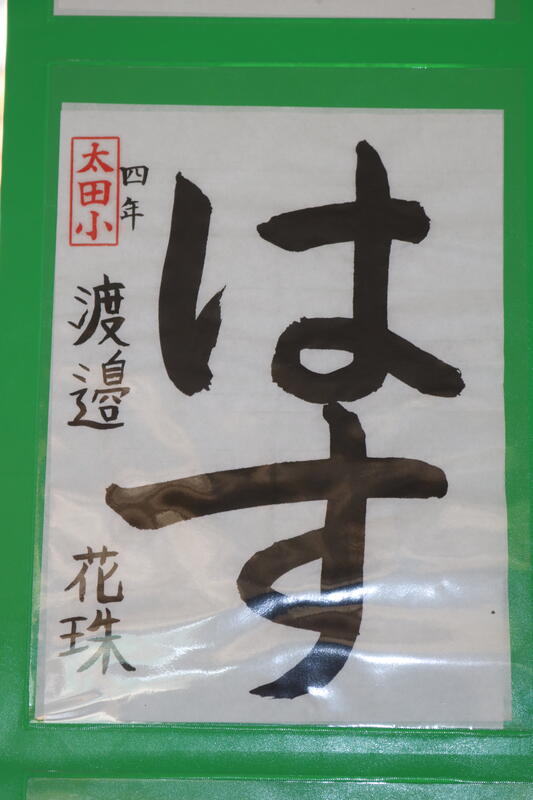 はす
四年
渡邉 花珠
太田小